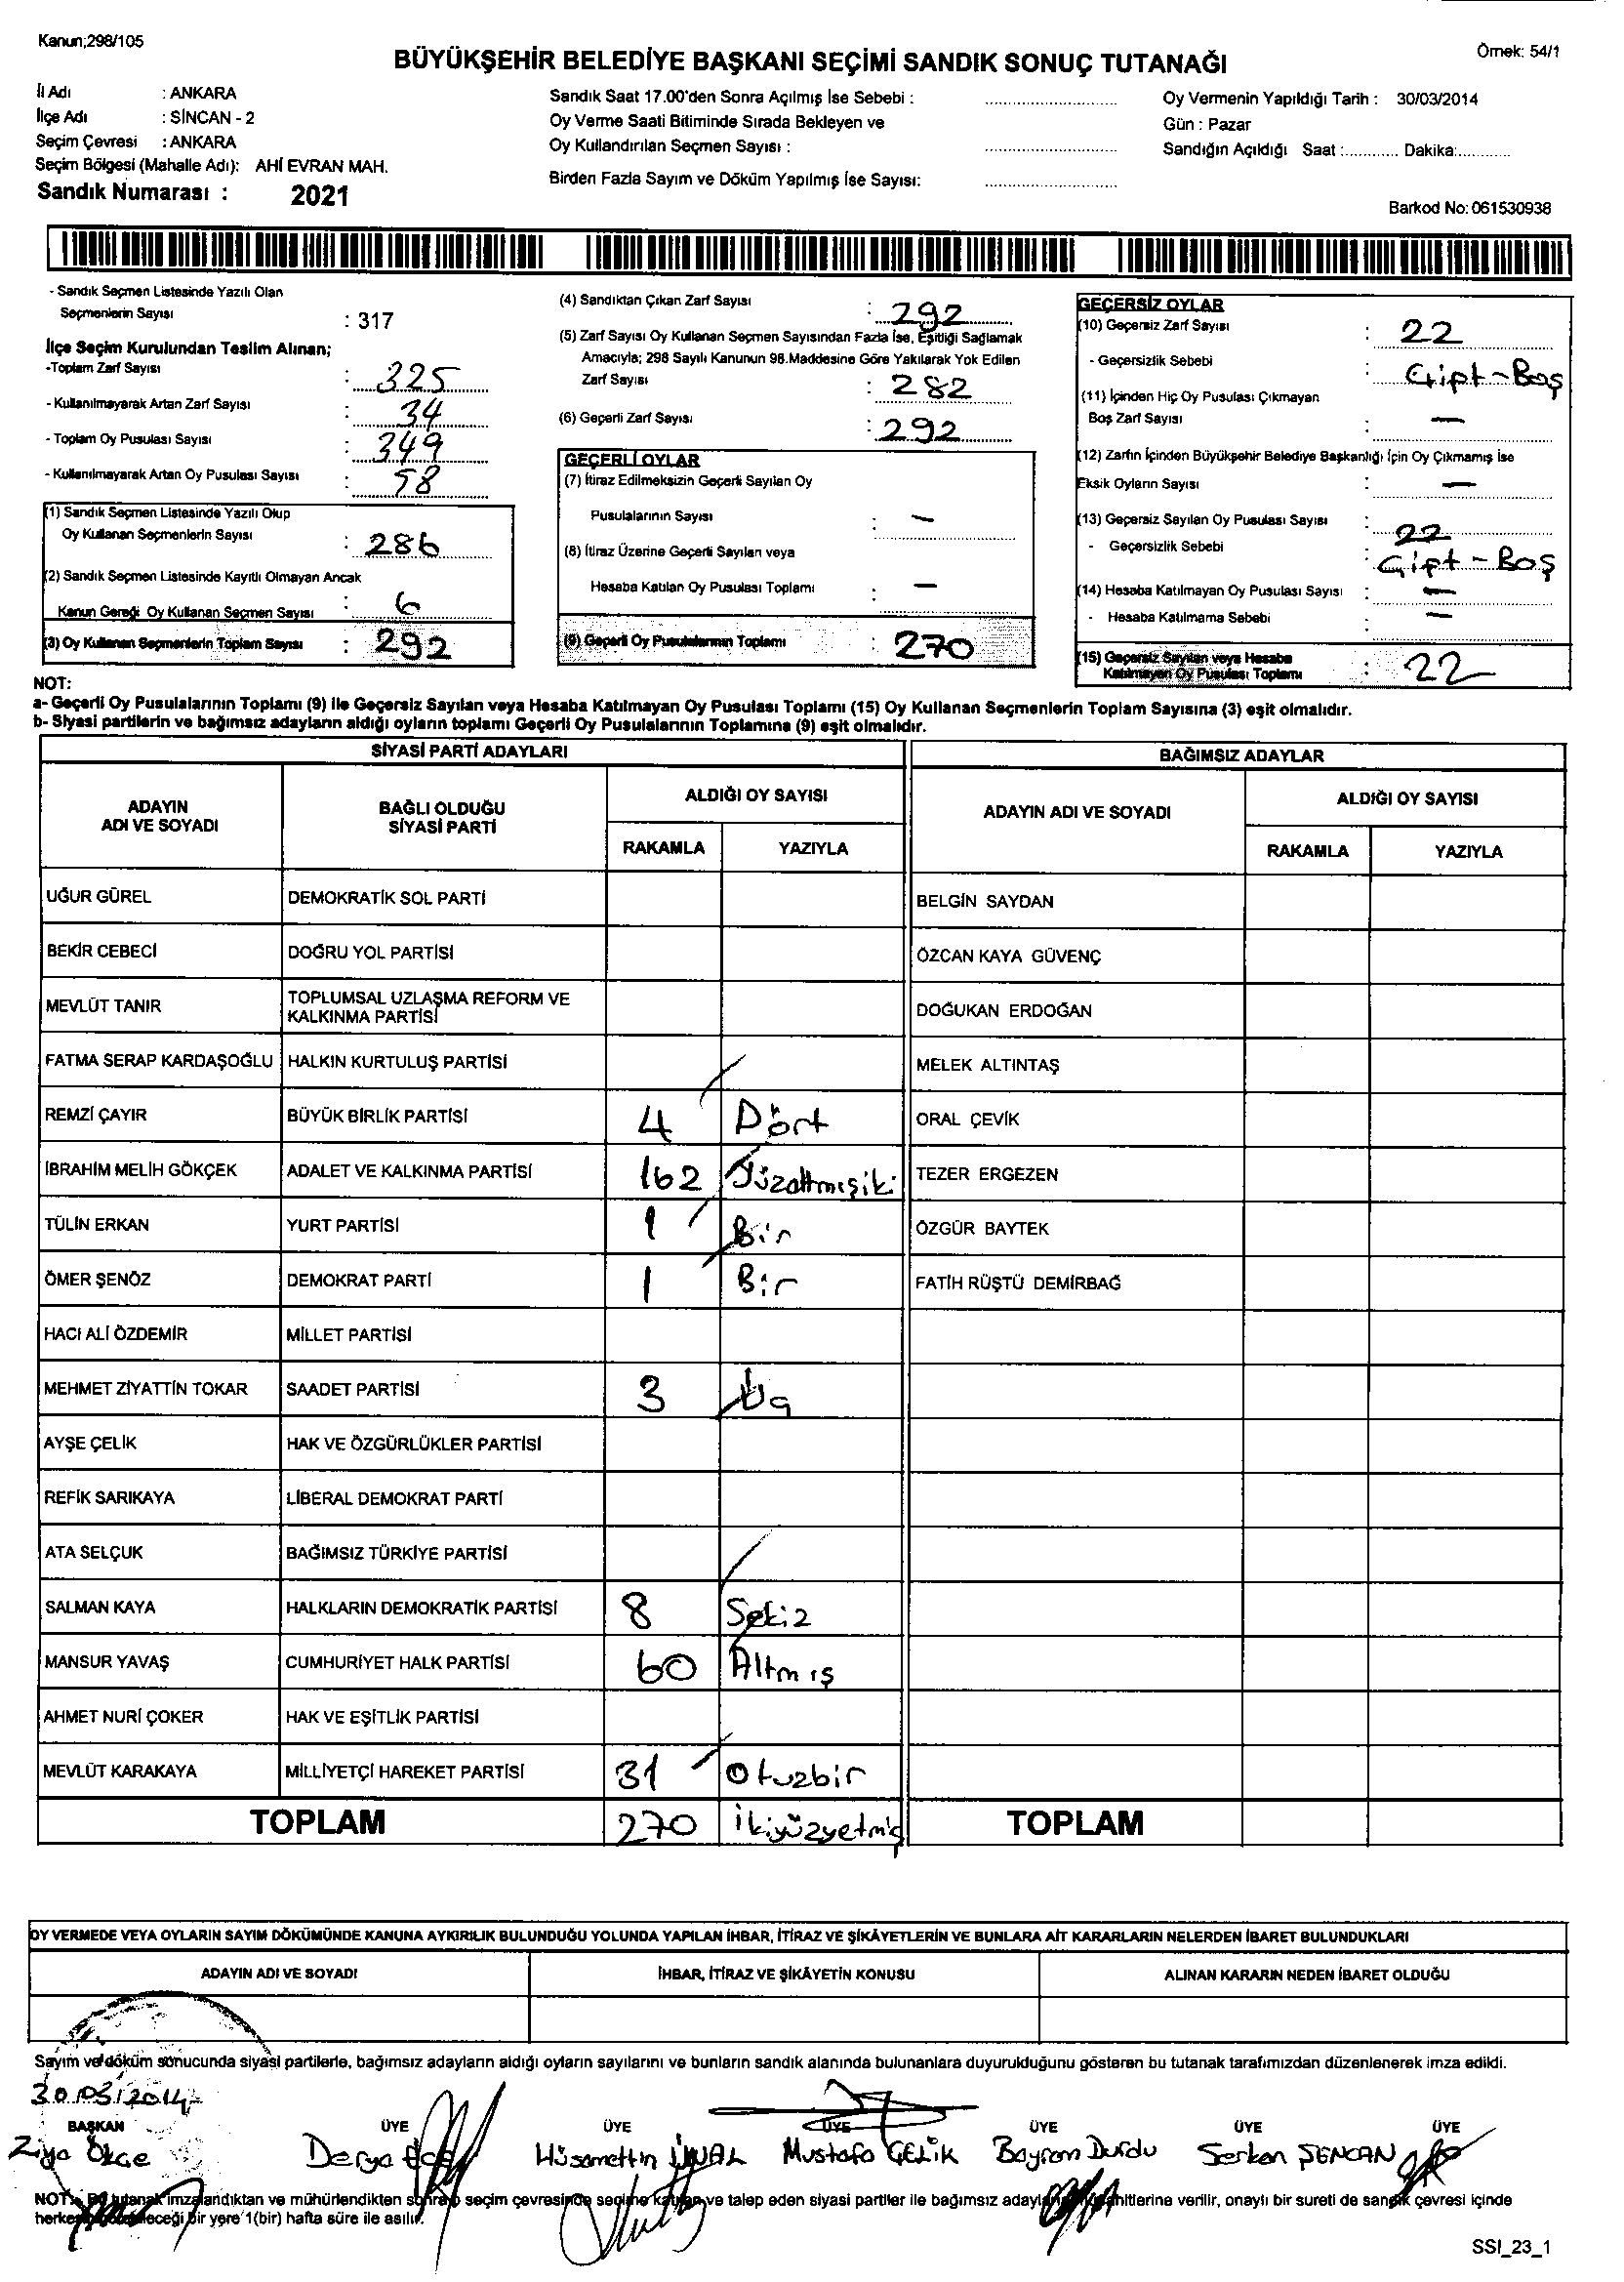 Kanun;298/105
Örnek: 54/1
BÜYÜKŞEHİR BELEDİYE BAŞKANI SEÇİMİ SANDIK SONUÇ TUTANAĞI
İl Adı : ANKARA
İlçe Adı : SİNCAN - 2
Seçim Çevresi : ANKARA
Seçim Bölgesi (Mahalle Adı): AHİ EVRAN MAH.
Sandık Numarası : 2021
Sandık Saat 17.00'den Sonra Açılmış İse Sebebi :
Oy Verme Saati Bitiminde Sırada Bekleyen ve
Oy Kullandırılan Seçmen Sayısı :
Birden Fazla Sayım ve Döküm Yapılmış İse Sayısı:
Oy Vermenin Yapıldığı Tarih : 30/03/2014
Gün : Pazar
Sandığın Açıldığı Saat :............ Dakika:...........
Barkod No: 061530938
- Sandık Seçmen Listesinde Yazılı Olan
Seçmenlerin Sayısı : 317
İlçe Seçim Kurulundan Teslim Alınan;
-Toplam Zarf Sayısı : 325
- Kullanılmayarak Artan Zarf Sayısı : 34
- Toplam Oy Pusulası Sayısı : 349
- Kullanılmayarak Artan Oy Pusulası Sayısı : 58
(1) Sandık Seçmen Listesinde Yazılı Olup
Oy Kullanan Seçmenlerin Sayısı : 286
(2) Sandık Seçmen Listesinde Kayıtlı Olmayan Ancak
Kanun Gereği Oy Kullanan Seçmen Sayısı : 6
(3) Oy Kullanan Seçmenlerin Toplam Sayısı : 292
(4) Sandıktan Çıkan Zarf Sayısı : 292
(5) Zarf Sayısı Oy Kullanan Seçmen Sayısından Fazla İse, Eşitliği Sağlamak
Amacıyla; 298 Sayılı Kanunun 98.Maddesine Göre Yakılarak Yok Edilen
Zarf Sayısı : 282
(6) Geçerli Zarf Sayısı : 292
GEÇERLİ OYLAR
(7) İtiraz Edilmeksizin Geçerli Sayılan Oy
Pusulalarının Sayısı : —
(8) İtiraz Üzerine Geçerli Sayılan veya
Hesaba Katılan Oy Pusulası Toplamı : —
(9) Geçerli Oy Pusulalarının Toplamı : 270
GEÇERSİZ OYLAR
(10) Geçersiz Zarf Sayısı : 22
- Geçersizlik Sebebi : Çipt-Boş
(11) İçinden Hiç Oy Pusulası Çıkmayan
Boş Zarf Sayısı : —
(12) Zarfın İçinden Büyükşehir Belediye Başkanlığı İçin Oy Çıkmamış İse
Eksik Oyların Sayısı : —
(13) Geçersiz Sayılan Oy Pusulası Sayısı : 22
- Geçersizlik Sebebi : Çift-Boş
(14) Hesaba Katılmayan Oy Pusulası Sayısı : —
- Hesaba Katılmama Sebebi : —
(15) Geçersiz Sayılan veya Hesaba
Katılmayan Oy Pusulası Toplamı : 22
NOT:
a- Geçerli Oy Pusulalarının Toplamı (9) ile Geçersiz Sayılan veya Hesaba Katılmayan Oy Pusulası Toplamı (15) Oy Kullanan Seçmenlerin Toplam Sayısına (3) eşit olmalıdır.
b- Siyasi partilerin ve bağımsız adayların aldığı oyların toplamı Geçerli Oy Pusulalarının Toplamına (9) eşit olmalıdır.
SİYASİ PARTİ ADAYLARI BAĞIMSIZ ADAYLAR
ADAYIN ADI VE SOYADI BAĞLI OLDUĞU SİYASİ PARTİ ALDIĞI OY SAYISI ADAYIN ADI VE SOYADI ALDIĞI OY SAYISI
RAKAMLA YAZIYLA RAKAMLA YAZIYLA
UĞUR GÜREL DEMOKRATİK SOL PARTİ BELGİN SAYDAN
BEKİR CEBECİ DOĞRU YOL PARTİSİ ÖZCAN KAYA GÜVENÇ
MEVLÜT TANIR TOPLUMSAL UZLAŞMA REFORM VE KALKINMA PARTİSİ DOĞUKAN ERDOĞAN
FATMA SERAP KARDAŞOĞLU HALKIN KURTULUŞ PARTİSİ MELEK ALTINTAŞ
REMZİ ÇAYIR BÜYÜK BİRLİK PARTİSİ 4 Dört ORAL ÇEVİK
İBRAHİM MELİH GÖKÇEK ADALET VE KALKINMA PARTİSİ 162 Yüzaltmışiki TEZER ERGEZEN
TÜLİN ERKAN YURT PARTİSİ 1 Bir ÖZGÜR BAYTEK
ÖMER ŞENÖZ DEMOKRAT PARTİ 1 Bir FATİH RÜŞTÜ DEMİRBAĞ
HACI ALİ ÖZDEMİR MİLLET PARTİSİ
MEHMET ZİYATTİN TOKAR SAADET PARTİSİ 3 Üç
AYŞE ÇELİK HAK VE ÖZGÜRLÜKLER PARTİSİ
REFİK SARIKAYA LİBERAL DEMOKRAT PARTİ
ATA SELÇUK BAĞIMSIZ TÜRKİYE PARTİSİ
SALMAN KAYA HALKLARIN DEMOKRATİK PARTİSİ 8 Sekiz
MANSUR YAVAŞ CUMHURİYET HALK PARTİSİ 60 Altmış
AHMET NURİ ÇOKER HAK VE EŞİTLİK PARTİSİ
MEVLÜT KARAKAYA MİLLİYETÇİ HAREKET PARTİSİ 31 Otuzbir
TOPLAM 270 İkiyüzyetmiş TOPLAM
OY VERMEDE VEYA OYLARIN SAYIM DÖKÜMÜNDE KANUNA AYKIRILIK BULUNDUĞU YOLUNDA YAPILAN İHBAR, İTİRAZ VE ŞİKÂYETLERİN VE BUNLARA AİT KARARLARIN NELERDEN İBARET BULUNDUKLARI
ADAYIN ADI VE SOYADI İHBAR, İTİRAZ VE ŞİKÂYETİN KONUSU ALINAN KARARIN NEDEN İBARET OLDUĞU
Sayım ve döküm sonucunda siyasi partilerle, bağımsız adayların aldığı oyların sayılarını ve bunların sandık alanında bulunanlara duyurulduğunu gösteren bu tutanak tarafımızdan düzenlenerek imza edildi.
30/03/2014
BAŞKAN ÜYE ÜYE ÜYE ÜYE ÜYE ÜYE
Ziya Ökçe Derya Hüsamettin ÜNAL Mustafa ÇELİK Bayram Durdu Serkan ŞENCAN
NOT: Bu tutanak imzalandıktan ve mühürlendikten sonra seçim çevresinde seçime katılan ve talep eden siyasi partiler ile bağımsız adayların müşahitlerine verilir, onaylı bir sureti de sandık çevresi içinde
herkesin görebileceği bir yere 1(bir) hafta süre ile asılır.
SSI_23_1